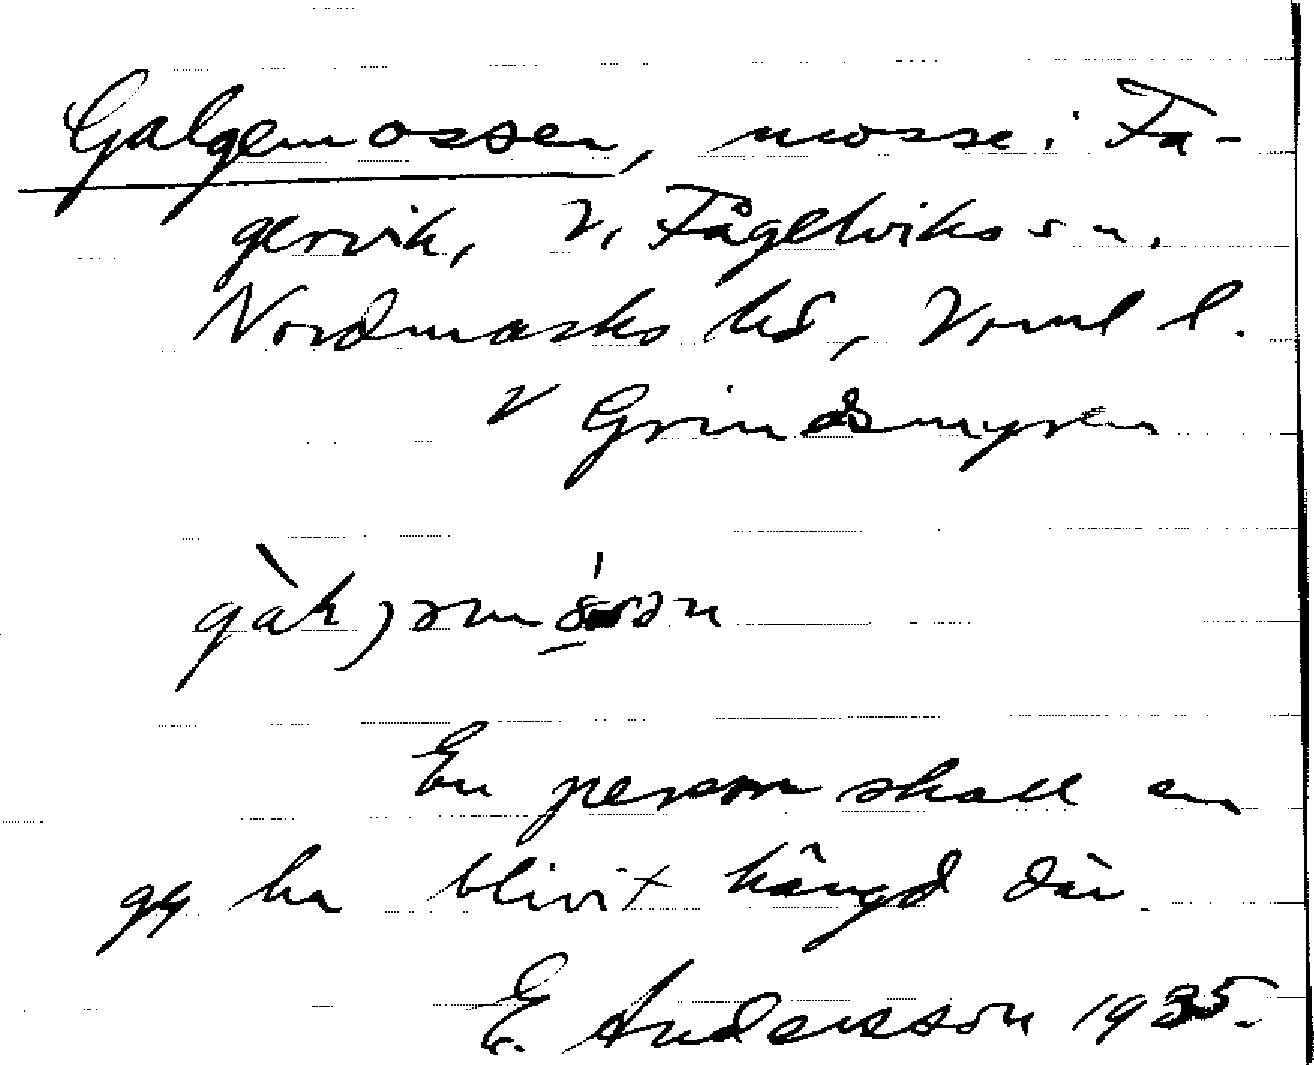 Galgemossen, mosse i Fa-
gervik, V. Fågelviks sn.
Nordmarks hd, Värml l.
V Grindsmyren
En person skall en
gg ha blivit hängd där.
E. Andersson 1935.